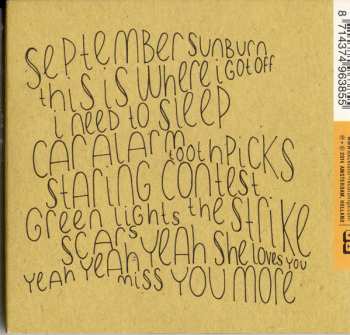 September sunburn
this is where i got off
i need to sleep
car alarm toothpicks
staring contest
Green lights the strike
scars yeah she loves you
yeah yeah miss you more
8 714374 963855
℗ + © 2014 AMSTERDAM, HOLLAND